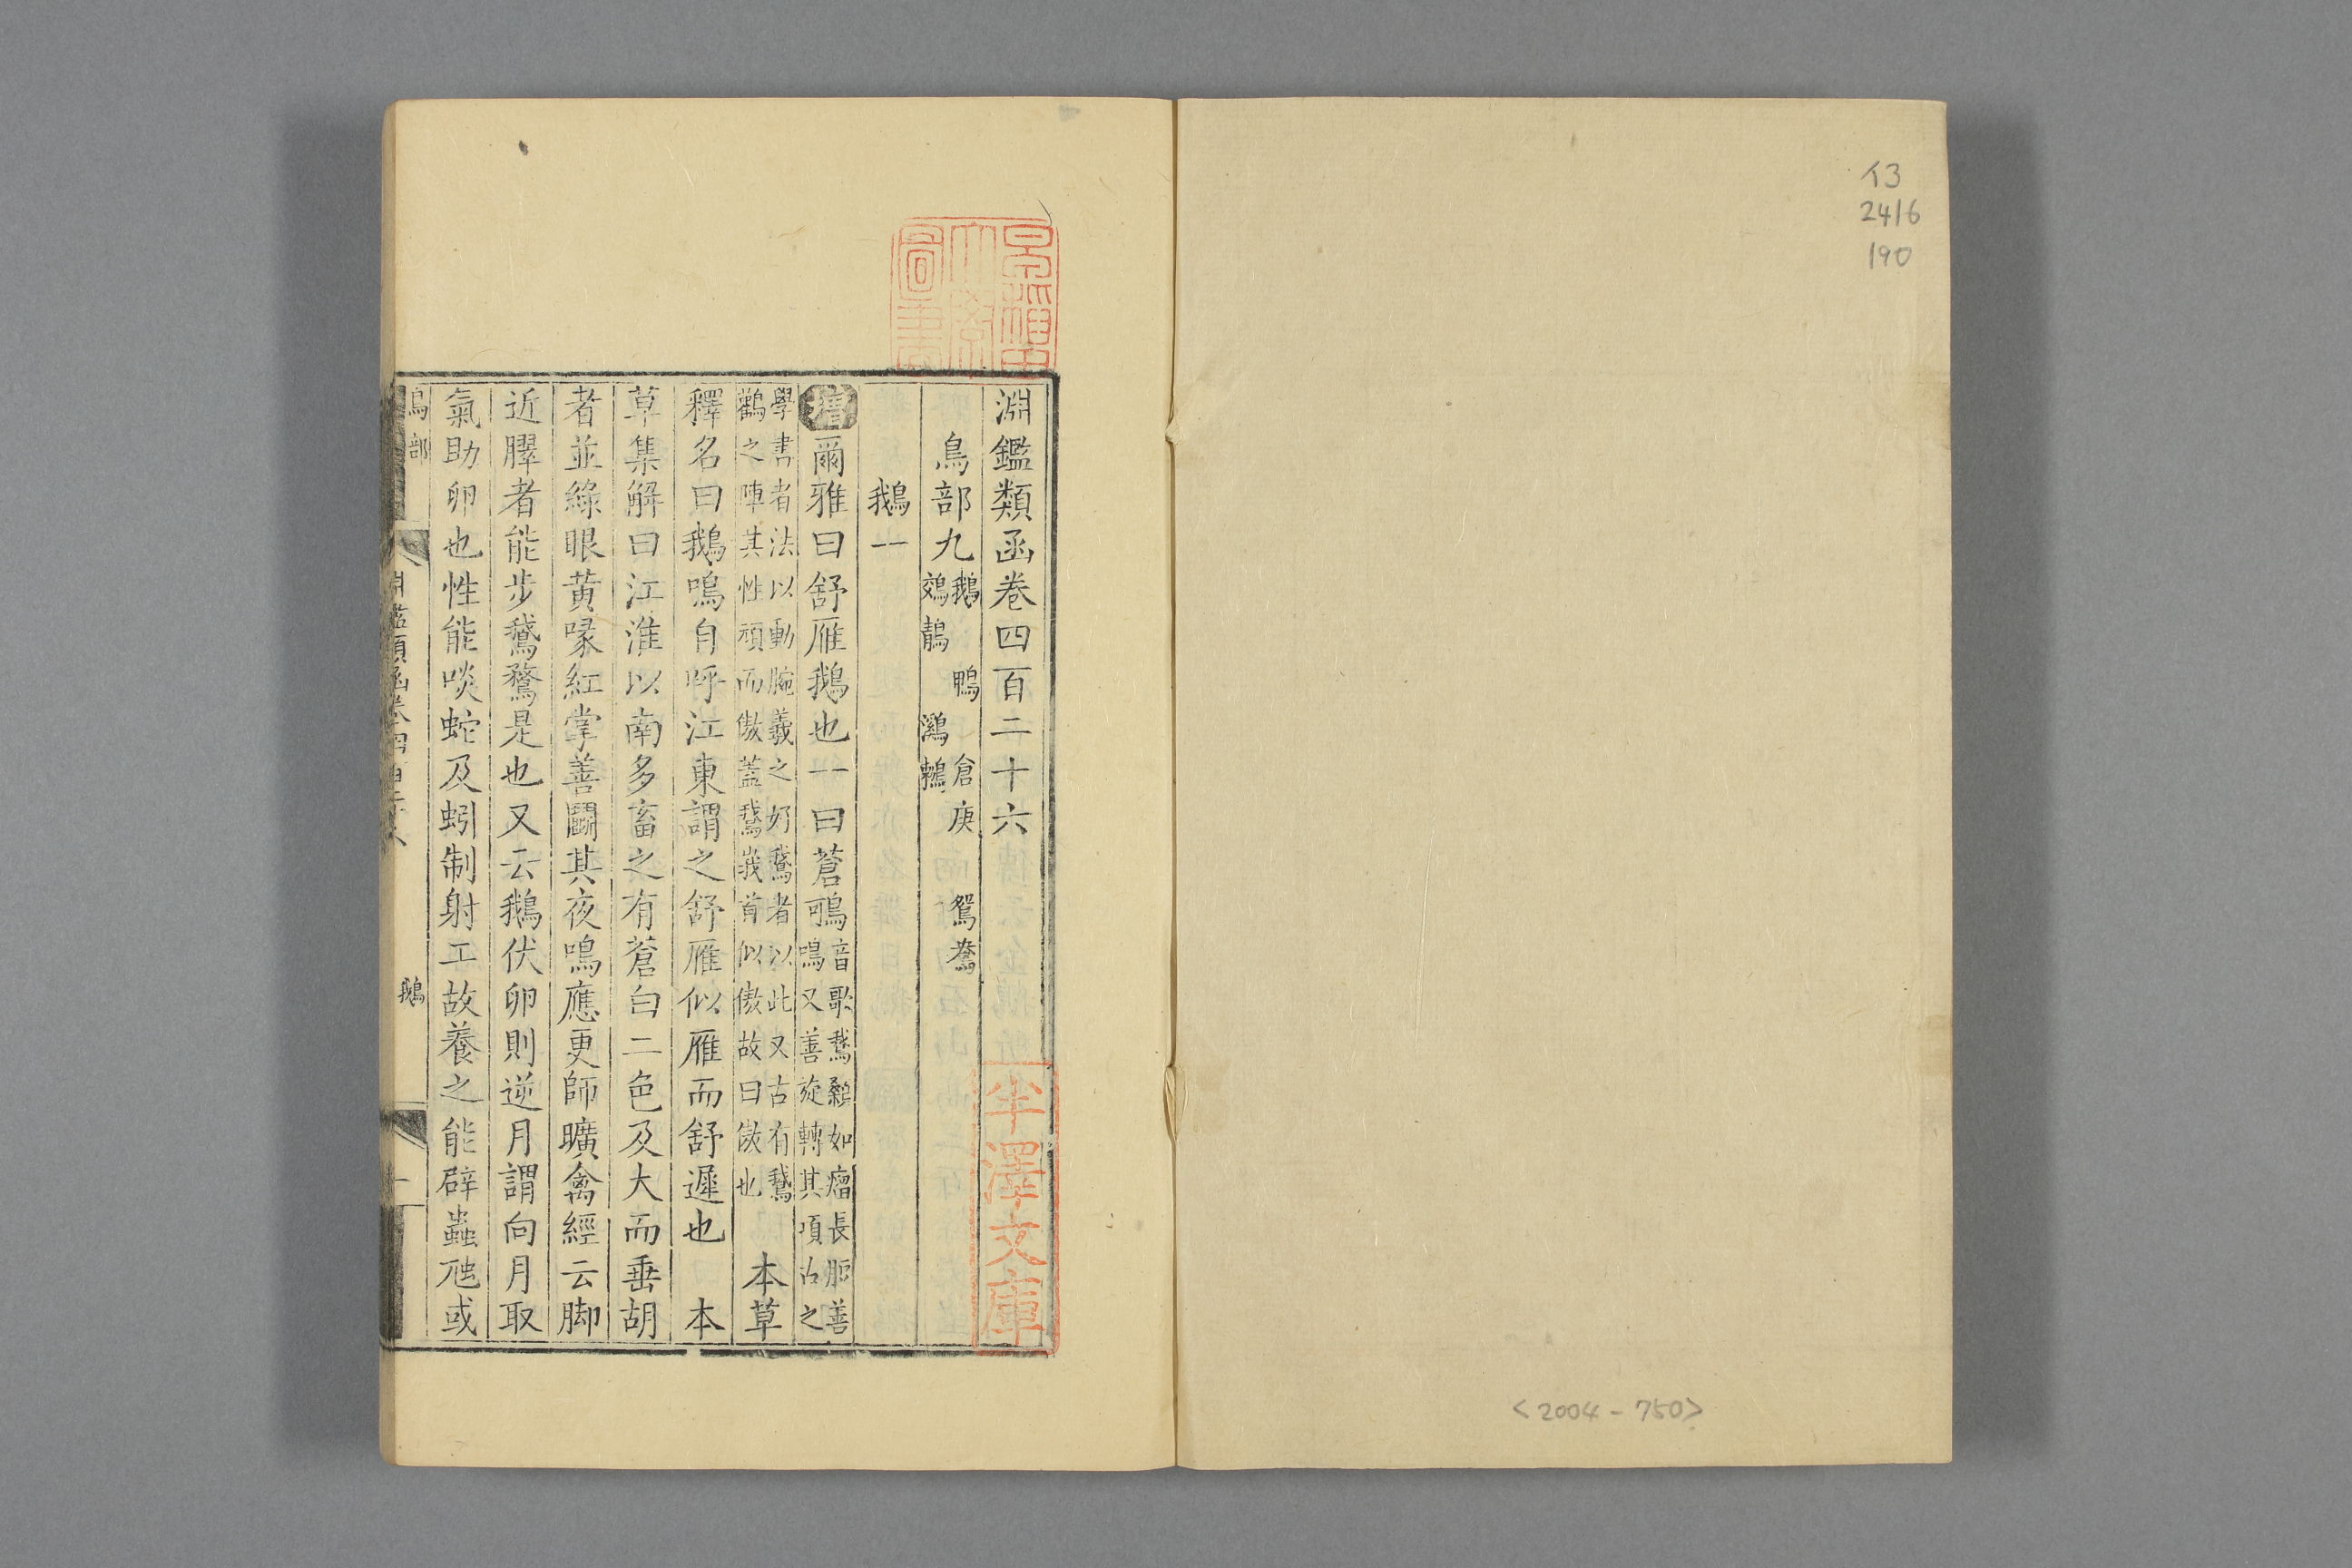 イ3
2416
190
<2004-750>
淵鑑類函卷四百二十六
鳥部九 鵝 鴨 倉庚 鴛鴦
鵁鶄 鸂鶒
鵝一
增 爾雅曰舒雁鵝也一曰蒼鴚 音歌鵞纇如瘤長脰善
鳴又善旋轉其項古之
學書者法以動腕羲之好鵞者以此又古有鵝
鸛之陣其性頑而傲蓋鵞峩首似傲故曰傲也 本草
釋名曰鵝鳴自呼江東謂之舒雁似雁而舒遲也 本
草集解曰江淮以南多畜之有蒼白二色及大而垂胡
者並綠眼黃喙紅掌善鬭其夜鳴應更師曠禽經云脚
近臎者能步鵞鶩是也又云鵝伏卵則逆月謂向月取
氣助卵也性能啖蛇及蚓制射工故養之能辟蟲虺或
鳥部
淵鑑類函卷四百二十六
鵝
一
圖書
半澤文庫